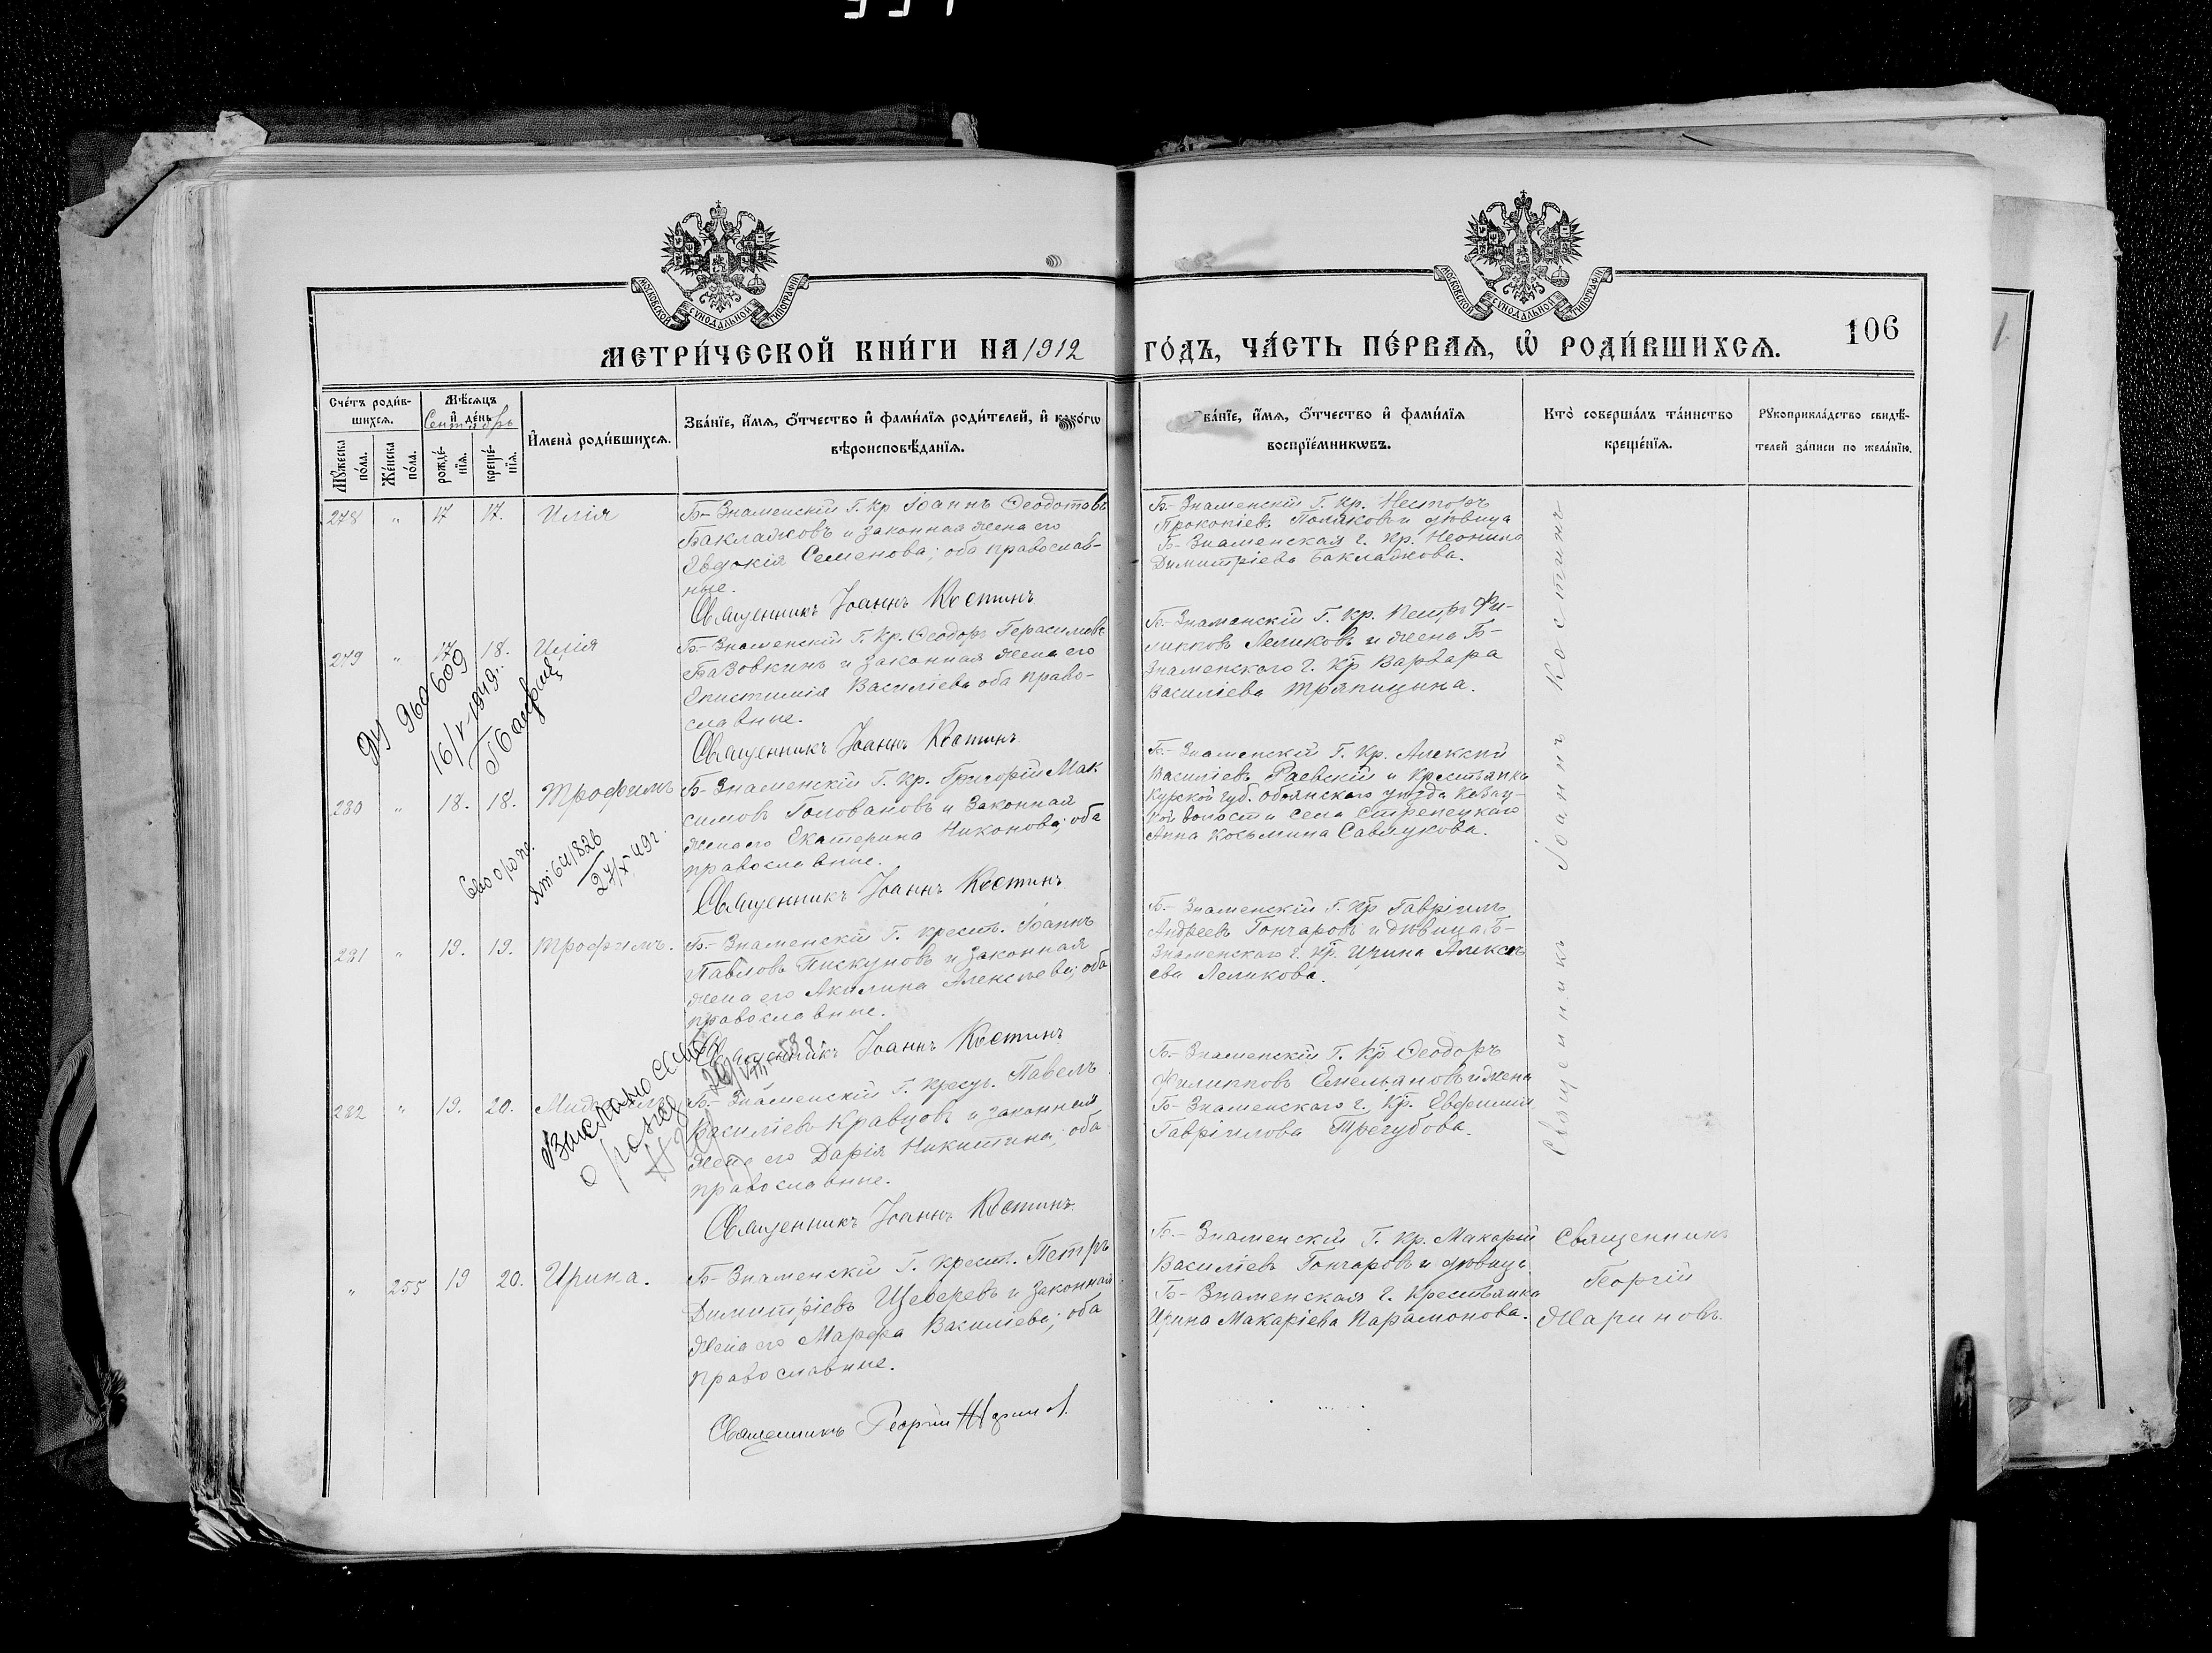 МОСКОВСКОЙ СѴНОДАЛЬНОЙ ТИПОГРАФІИ
МОСКОВСКОЙ СѴНОДАЛЬНОЙ ТИПОГРАФІИ
МЕТРИ́ЧЕСКОЙ КНИ́ГИ НА 1912
ГО́ДЪ, ЧА́СТЬ ПЕ́РВАѦ, Ѽ РОДИ́ВШИХСѦ.
106
Сче́тъ роди́в-
шихсѧ.
Мѣ́сѧцъ
и҆ де́нь
Сентябрь
Мꙋ́жеска
по́ла.
Же́нска
по́ла.
рожде́-
нїѧ.
креще́-
нїѧ.
И҆мена̀ роди́вшихсѧ.
Зва́нїе, и҆́мѧ, ѻ҆́тчество и҆ фами́лїѧ роди́телей, и҆ како́гѡ
вѣроисповѣ́данїѧ.
Зва́нїе, и҆́мѧ, ѻ҆́тчество и҆ фами́лїѧ
воспрїе́мникѡвъ.
Кто̀ соверша́лъ та́инство
креще́нїѧ.
Рꙋкоприкла́дство свидѣ́-
телей за́писи по жела́нїю.
278 " 17 17. Илія
Б-Знаменскій Г. Кр Іоаннъ Ѳеодотовъ
Баклажковъ и законная жена его
Евдокія Семенова; оба православ-
ные.
Священникъ Іоаннъ Костинъ
Б-Знаменскій Г. Кр. Несторъ
Прокопіевъ Поляковъ и дѣвица
Б-Знаменская г. Кр. Неонила
Димитріева Баклажкова.
279 " 17 18. Илія
Б-Знаменскій Г. Кр. Ѳеодоръ Герасимовъ
Базовкинъ и законная жена его
Епистимія Василіева оба право-
славные.
Священникъ Іоаннъ Костинъ
Б-Знаменскій Г. Кр. Петръ Фи-
липповъ Леликовъ и жена Б-
Знаменскаго г. Кр Варвара
Василіева Тряпицына.
960609
16/V-1949г.
280 " 18. 18. Трофимъ
Б-Знаменскій Г. Кр. Григорій Мак
симовъ Головановъ и законная
жена его Екатерина Никонова; оба
православные.
Священникъ Іоаннъ Костинъ
Б-Знаменскій Г. Кр. Алексій
Василіевъ Раевскій и крестьянка
Курской губ. Обоянскаго уѣзда
волости села Стрелецкаго
Анна Косьмина Савлукова.
27/X 49г.
281 " 19. 19. Трофимъ.
Б-Знаменскій Г. крест. Іоаннъ
Павловъ Пискуновъ и законная
жена его Акилина Алексѣева; оба
православные.
Священникъ Іоаннъ Костинъ
Б-Знаменскій Г. Кр Гавріилъ
Андреевъ Гончаровъ и дѣвица Б-
Знаменскаго г. Кр. Ирина Алексѣ
ева Леликова.
282 " 19. 20.
Б-Знаменскій Г. Крест. Павелъ
Василіевъ Кравцовъ и законная
жена его Дарія Никитина; оба
православные.
Священникъ Іоаннъ Костинъ
Б-Знаменскій Г. Кр Ѳеодоръ
Филипповъ Емельяновъ и жена
Б-Знаменскаго г. Кр. Евфимія
Гавріилова Трегубова.
Священникъ Іоаннъ Костинъ
" 255 19 20. Ирина.
Б-Знаменскій Г. крест. Петръ
Димитріевъ Щеберевъ и законная
жена его Марфа Василіева; оба
православные.
Священникъ Георгій
Б-Знаменскій Г. Кр. Макарій
Василіевъ Гончаровъ и дѣвица
Б-Знаменская г. крестьянка
Ирина Макаріева Парамонова.
Священникъ
Георгій
Жариновъ.